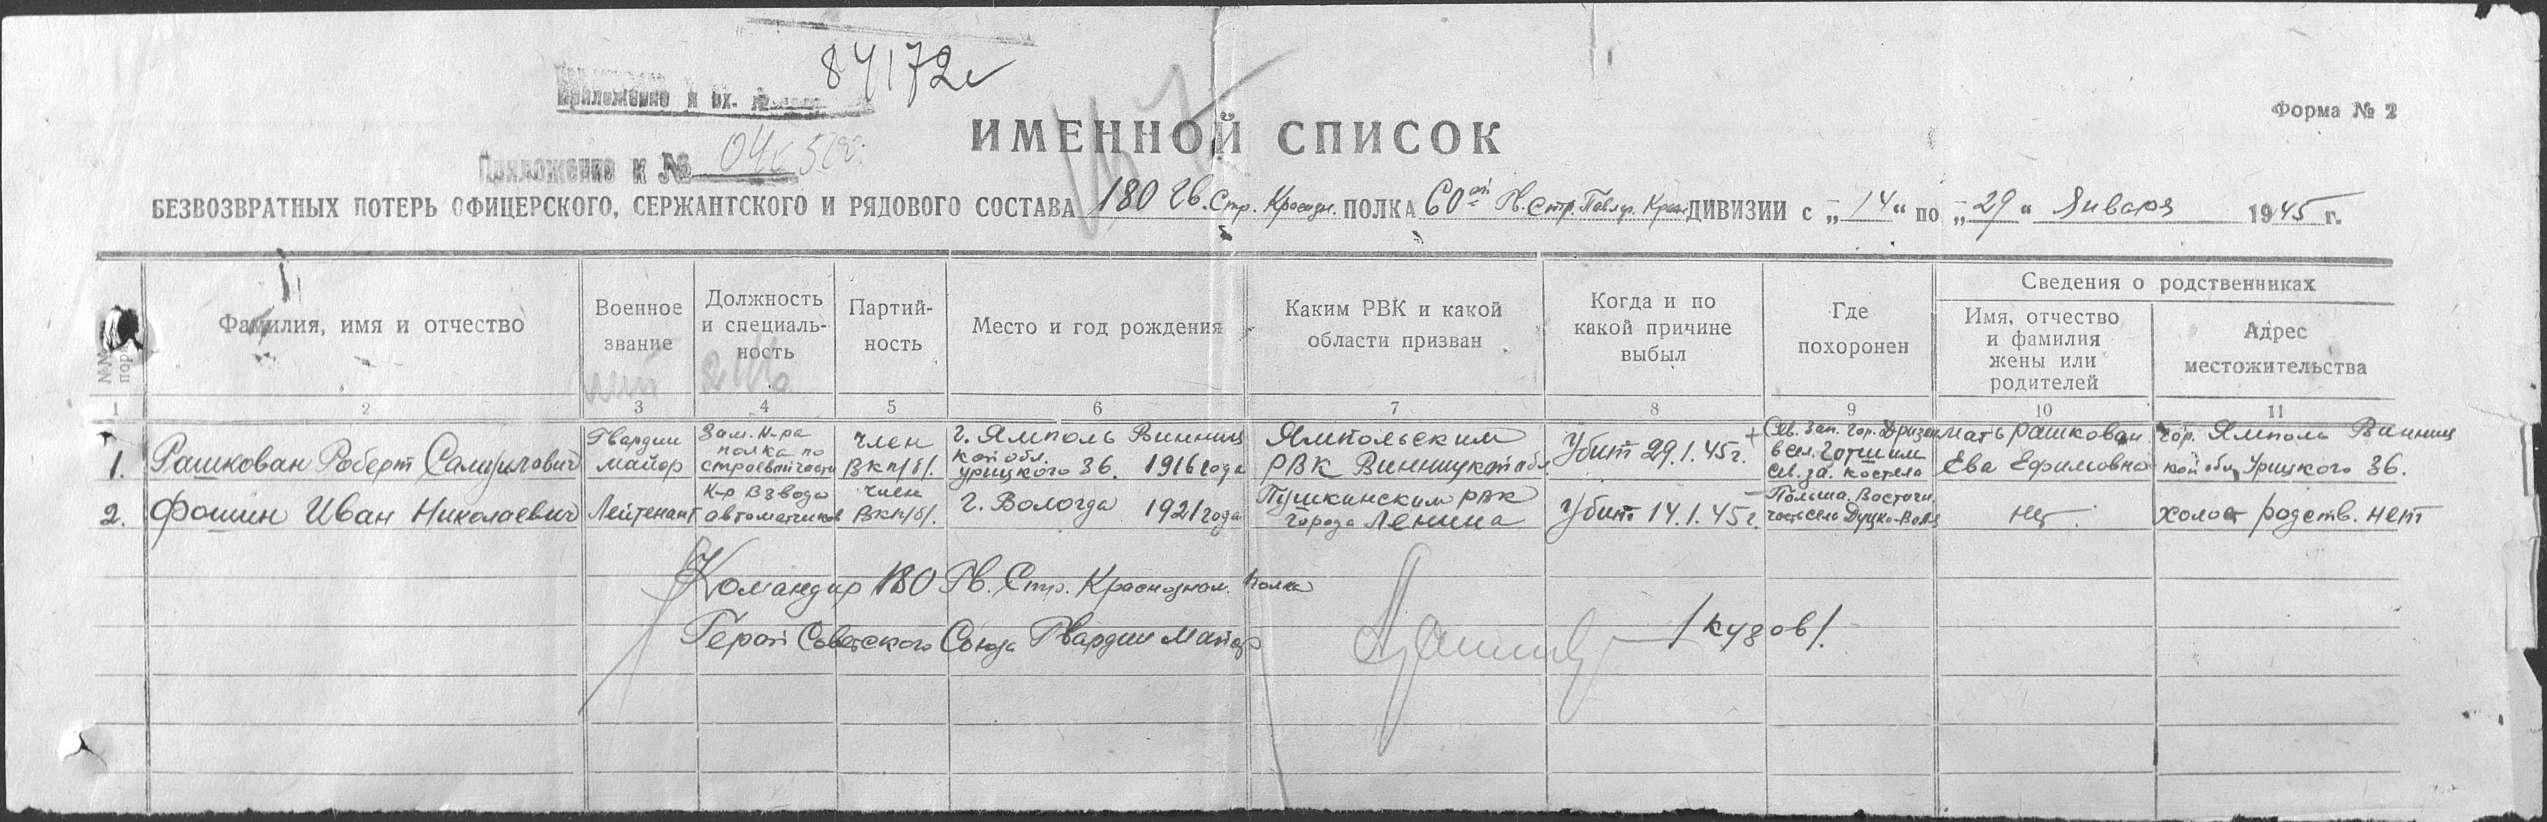 84172
Приложение к вх. №
Форма № 2
ИМЕННОЙ СПИСОК
Приложение к №
БЕЗВОЗВРАТНЫХ ПОТЕРЬ ОФИЦЕРСКОГО, СЕРЖАНТСКОГО И РЯДОВОГО СОСТАВА 180 Гв. Стр. Краснозн. ПОЛКА 60ой Гв. Стр. Павлгр. Крзн ДИВИЗИИ с „14“ по „29“ Января 1945 г.
№№ пор.
Фамилия, имя и отчество
Военное
звание
Должность
и специаль-
ность
Партий-
ность
Место и год рождения
Каким РВК и какой
области призван
Когда и по
какой причине
выбыл
Где
похоронен
Сведения о родственниках
Имя, отчество
и фамилия
жены или
родителей
Адрес
местожительства
1 2 3 4 5 6 7 8 9 10 11
1.
Рашкован Роберт Самуилович
Гвардии
майор
Зам. к-ра
полка по
строевой части
член
ВКП/б/.
г. Ямполь Винниц
кой обл.
урицкого 36. 1916 года
Ямпольским
РВК Винницкой обл
Убит 29.1.45г.
Сев. зап. гор. Дризен
в сел. Готшим
сев. за. костела
мать Рашкован
Ева Ефимовна
гор. Ямполь Винниц
кой обл Урицкого 36.
2.
Фошин Иван Николаевич
Лейтенант
К-р взвода
автоматчиков
член
ВКП/б/.
г. Вологда 1921 года
Пушкинским РВК
города Ленина
Убит 14.1.45г.
Польша. Восточн.
часть села Дуцка-Воля
нет
холост родств. нет
Командир 180 Гв. Стр. Краснознам. полка
Герой Советского Союза Гвардии майор /Кузов/.